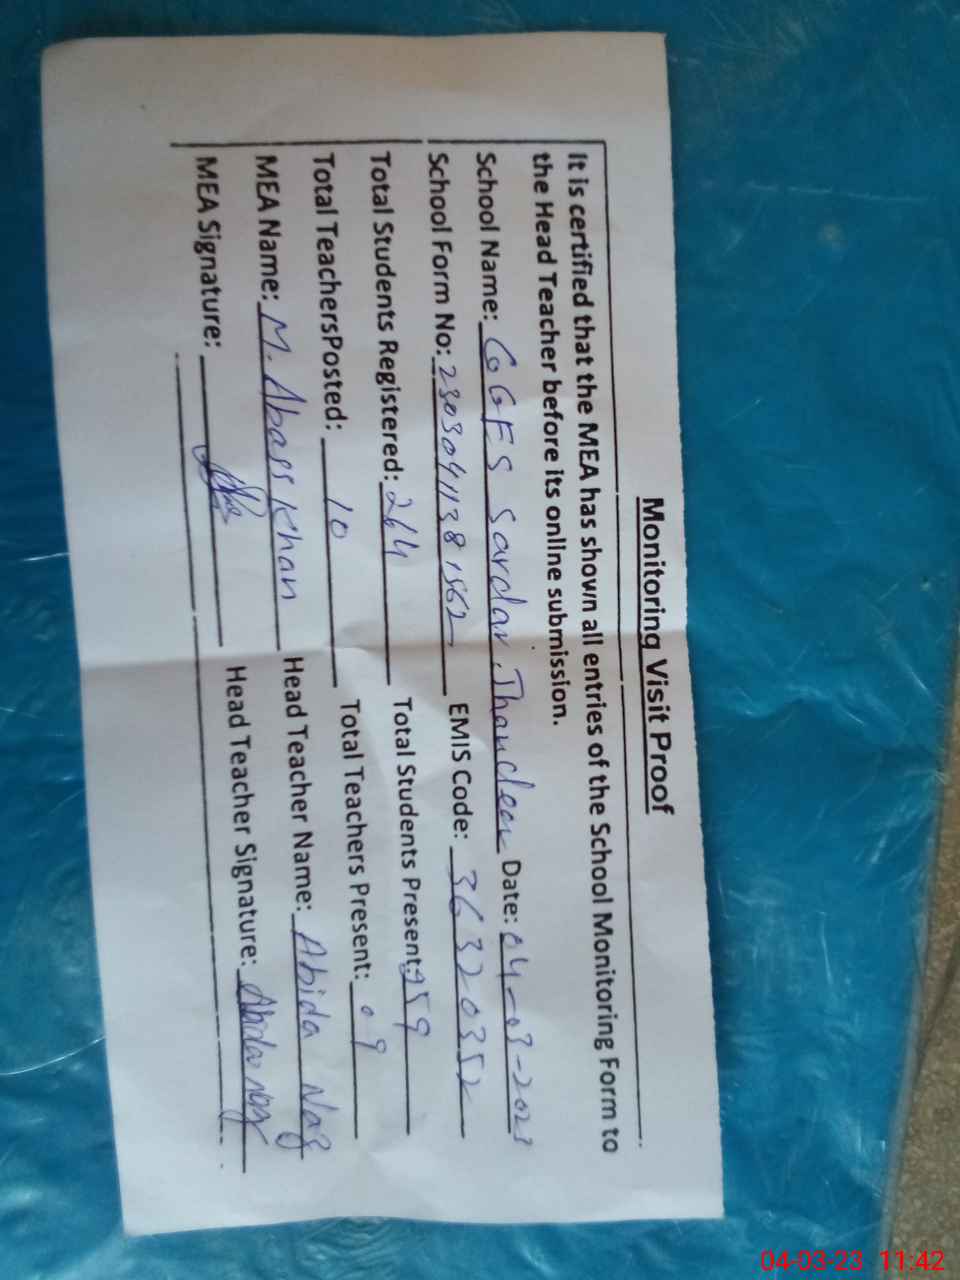 Monitoring Visit Proof
It is certified that the MEA has shown all entries of the School Monitoring Form to
the Head Teacher before its online submission.
School Name: GGES Sardar Jhandeer Date: 04-03-2023
School Form No: 23030411381562 EMIS Code: 36320352
Total Students Registered: 264 Total Students Present: 259
Total TeachersPosted: 10 Total Teachers Present: 09
MEA Name: M. Abass Khan Head Teacher Name: Abida Naz
MEA Signature: Head Teacher Signature: Abida Naz
04-03-23 11:42